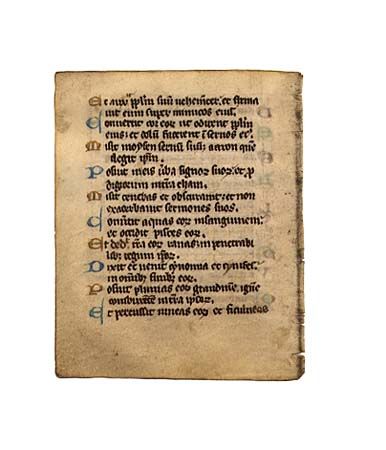 Et auxit pplm suū uehemēter. et firma
uit eum super inimicos eius.
Conuertit cor eor ut odirent pplm
eius. et dolū facerent ī seruos ei.
Misit moysen seruū suū. aaron que
elegit ipm.
Posuit in eis uba signor suor. et p
digior in terra cham.
Misit tenebras et obscurauit. et non
exacerbauit sermones suos.
Conuertit aquas eor in sanguinem.
et occidit pisces eor.
Et dedit terra eor ranas. in penetrabi
lib; regum ipor.
Dixit et uenit cynomia et cynifes.
in omib; finib; eor.
Posuit pluuias eor grandinē. ignē
comburentē in terra ipor.
Et percussit uineas eor et ficulneas